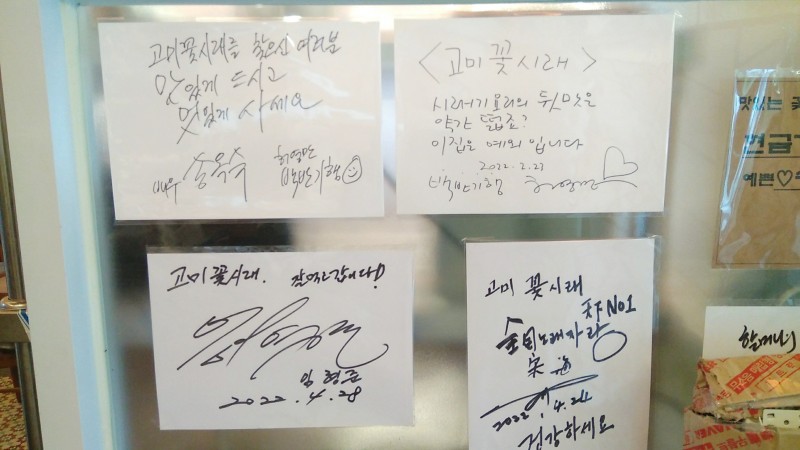 고미꽃시래를 찾으신 여러분
맛있게 드시고
멋있게 사세요
배우 송옥숙
허영만
백반기행
<고미꽃시래>
시래기요리의 뒷맛은
약간 떫죠?
이집은 예외 입니다
2022.2.23
백반기행 허영만
고미꽃시래. 잘먹고갑니다!
임형준
2022.4.28
고미 꽃시래
天下 NO1
全国노래자랑
宋海
2022.4.24
건강하세요
맛있는
현금
예쁜♡
할머니